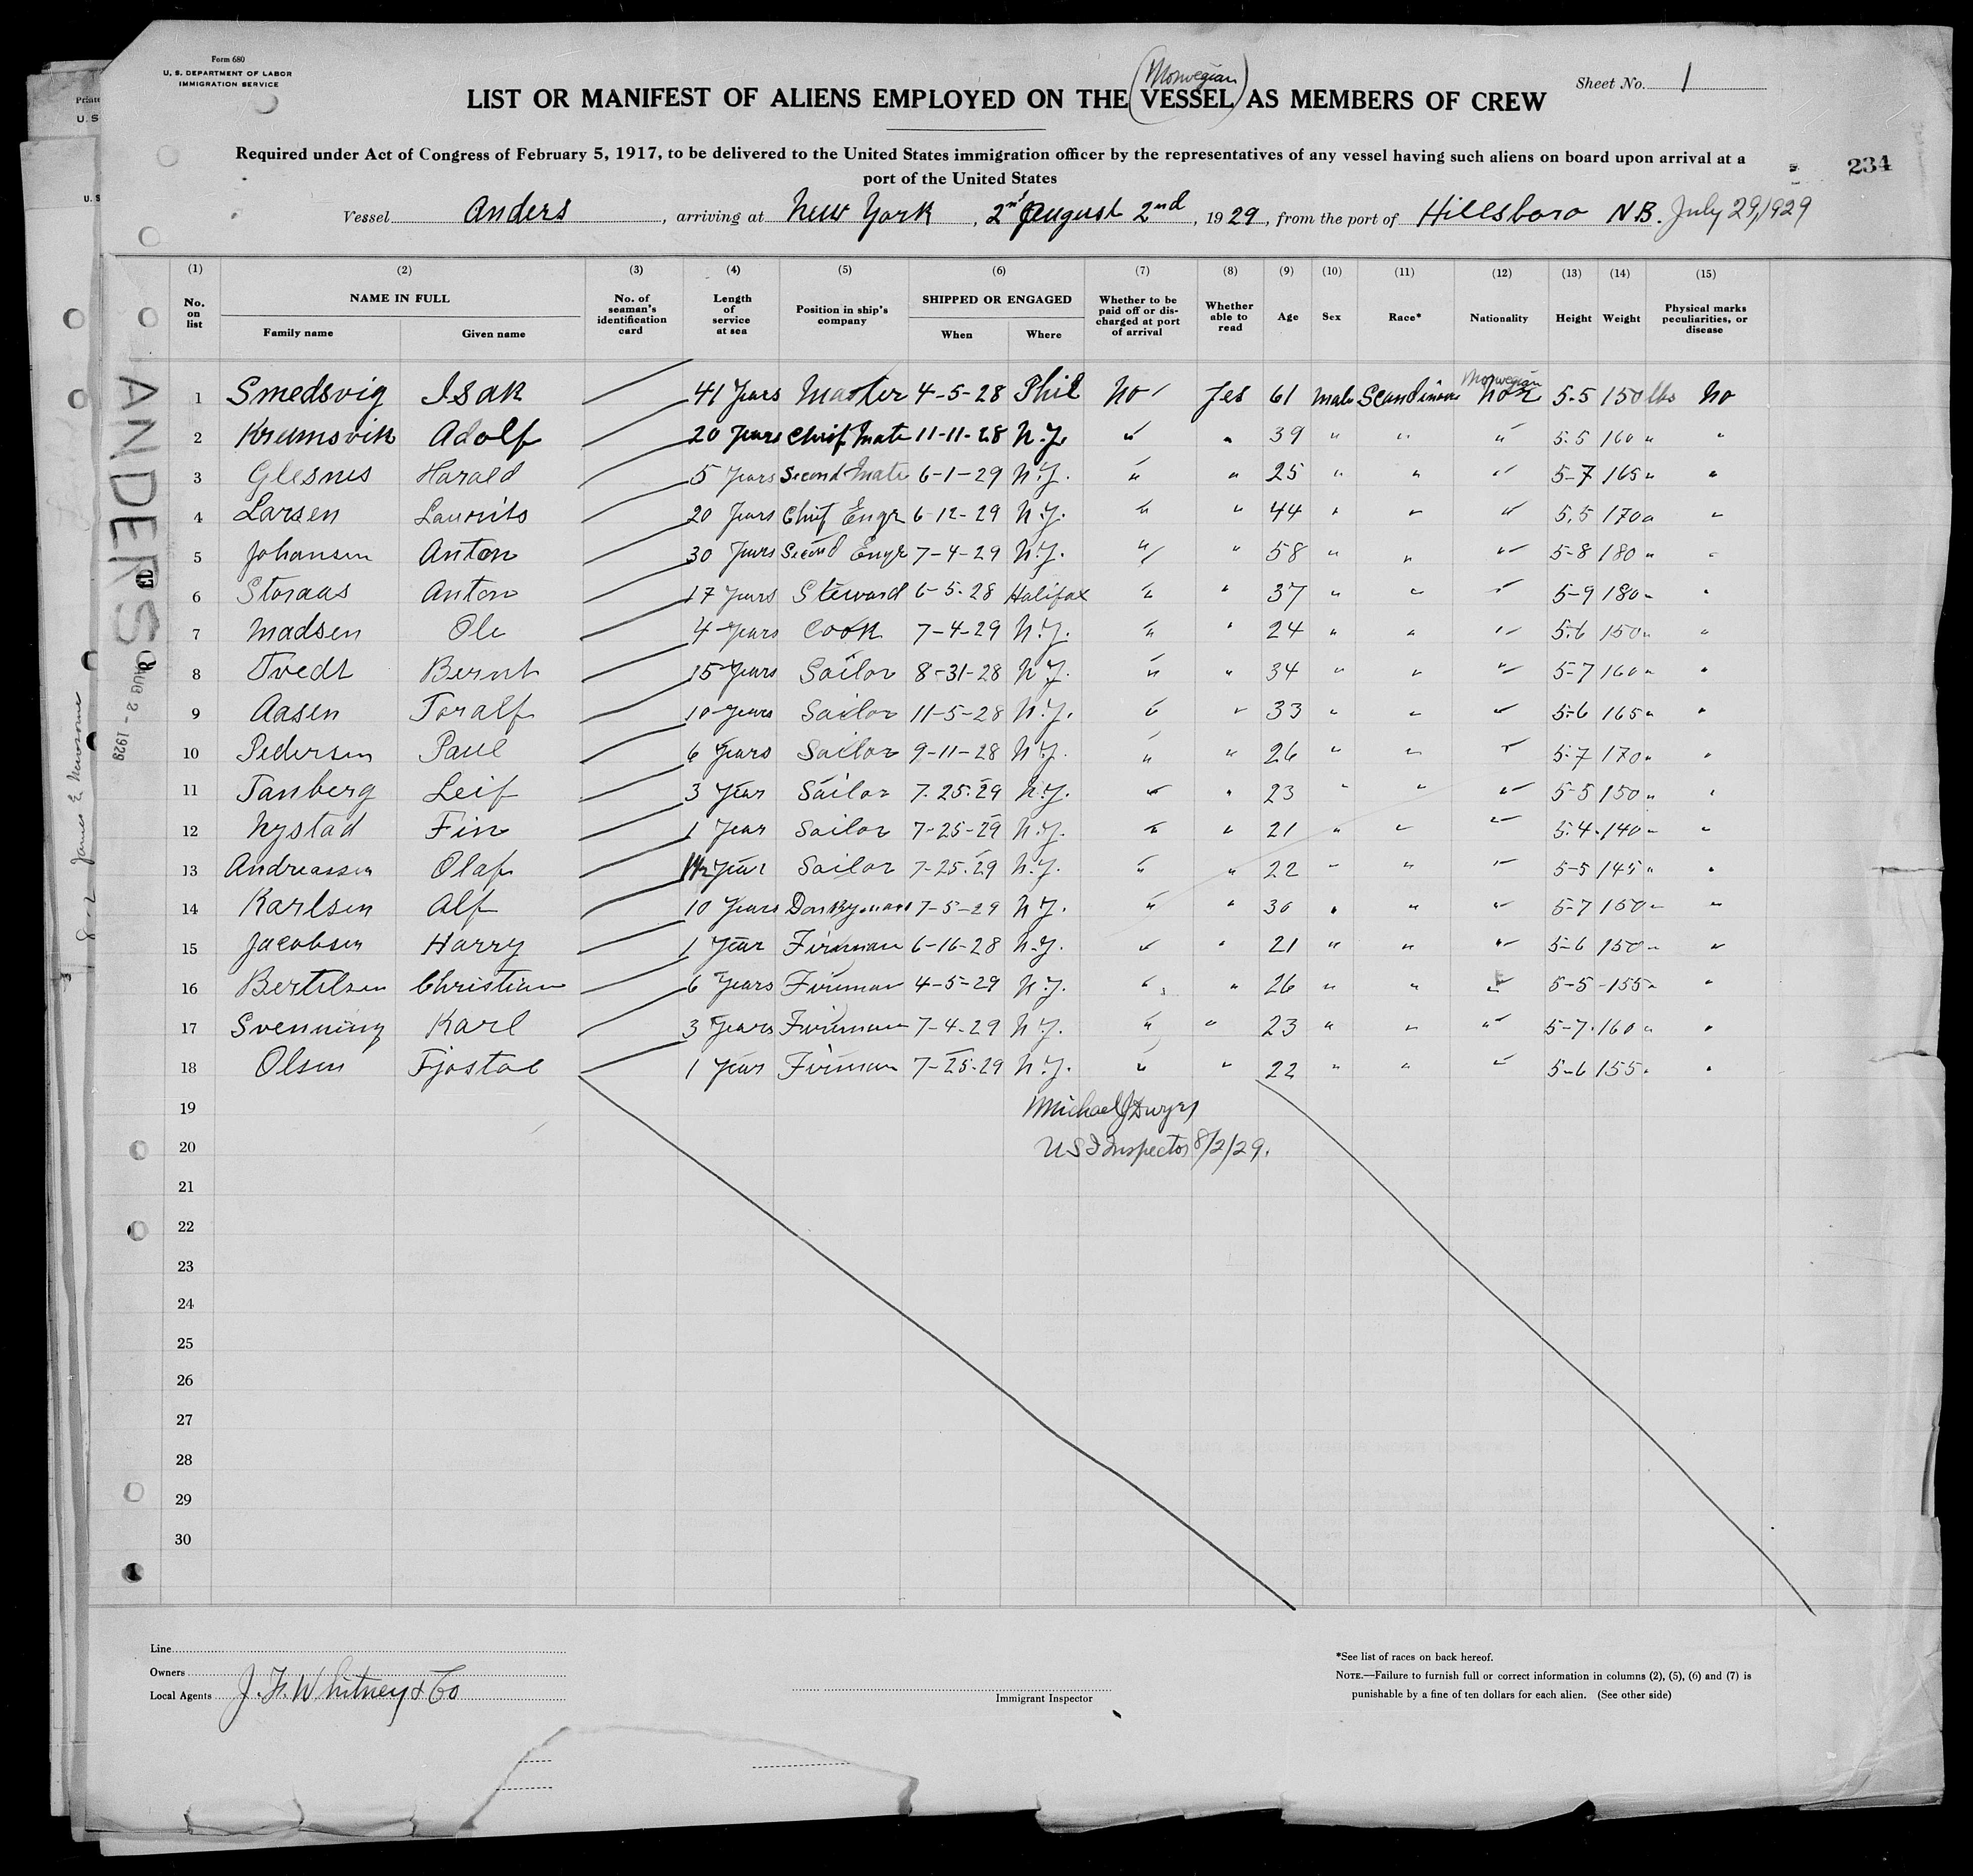 Form 680
U. S. DEPARTMENT OF LABOR
IMMIGRATION SERVICE
Sheet No. 1
(Norwegian)
LIST OR MANIFEST OF ALIENS EMPLOYED ON THE VESSEL AS MEMBERS OF CREW
Required under Act of Congress of February 5, 1917, to be delivered to the United States immigration officer by the representatives of any vessel having such aliens on board upon arrival at a
port of the United States
234
Vessel Anders, arriving at New York, August 2nd, 1929, from the port of Hillsboro N.B. July 29, 1929
(1) (2) (3) (4) (5) (6) (7) (8) (9) (10) (11) (12) (13) (14) (15)
No. on list NAME IN FULL Family name Given name No. of seaman's identification card Length of service at sea Position in ship's company SHIPPED OR ENGAGED When Where Whether to be paid off or discharged at port of arrival Whether able to read Age Sex Race* Nationality Height Weight Physical marks peculiarities, or disease
1 Smedsvig Isak 41 Years Master 4-5-28 Phil No Yes 61 male Scandinav Norwegian 5-5 150 lbs No
2 Krumsvik Adolf 20 Years Chief Mate 11-11-28 N.Y. " " 39 " " " 5.5 160 " "
3 Glesnes Harald 5 Years Second Mate 6-1-29 N.Y. " " 25 " " " 5-7 165 " "
4 Larsen Laurits 20 Years Chief Engr 6-12-29 N.Y. " " 44 " " " 5.5 170 " "
5 Johansen Anton 30 Years Second Engr 7-4-29 N.Y. " " 58 " " " 5-8 180 " "
6 Storaas Anton 17 Years Steward 6-5-28 Halifax " " 37 " " " 5-9 180 " "
7 Madsen Ole 4 Years Cook 7-4-29 N.Y. " " 24 " " " 5.6 150 " "
8 Tvedt Bernt 15 Years Sailor 8-31-28 N.Y. " " 34 " " " 5-7 160 " "
9 Aasen Toralf 10 Years Sailor 11-5-28 N.Y. " " 33 " " " 5-6 165 " "
10 Pedersen Paul 6 Years Sailor 9-11-28 N.Y. " " 26 " " " 5.7 170 " "
11 Tanberg Leif 3 Year Sailor 7.25.29 N.Y. " " 23 " " " 5-5 150 " "
12 Nystad Fin 1 Year Sailor 7-25-29 N.Y. " " 21 " " " 5.4 140 " "
13 Andreassen Olaf Year Sailor 7-25.29 N.Y. " " 22 " " " 5-5 145 " "
14 Karlsen Alf 10 Years Donkeyman 7-5-29 N.Y. " " 30 " " " 5-7 150 " "
15 Jacobsen Harry 1 Year Fireman 6-16-28 N.Y. " " 21 " " " 5-6 150 " "
16 Bertelsen Christian 6 Years Fireman 4-5-29 N.Y. " " 26 " " " 5-5 155 " "
17 Svenning Karl 3 Years Fireman 7-4-29 N.Y. " " 23 " " " 5-7 160 " "
18 Olsen Fjostol 1 Year Fireman 7-25-29 N.Y. " " 22 " " " 5-6 155 " "
19 Michael J Dwyer
20 U S I Inspector 8/2/29.
21
22
23
24
25
26
27
28
29
30
ANDERS
AUG 2 - 1929
Line
Owners
Local Agents J. F. Whitney & Co
Immigrant Inspector
*See list of races on back hereof.
NOTE.—Failure to furnish full or correct information in columns (2), (5), (6) and (7) is
punishable by a fine of ten dollars for each alien. (See other side)